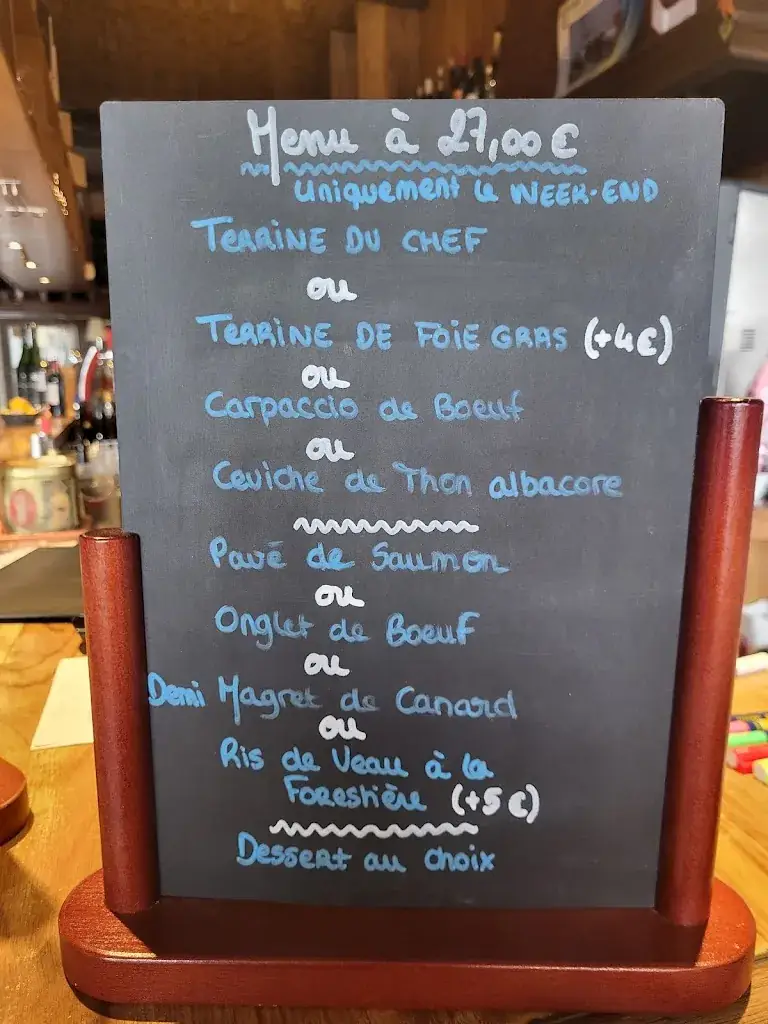 Menu à 27,00 €
Uniquement le WEEK-END
TERRINE DU CHEF
ou
TERRINE DE FOIE GRAS (+4€)
ou
Carpaccio de Boeuf
ou
Ceviche de Thon albacore
Pavé de Saumon
ou
Onglet de Boeuf
ou
Demi Magret de Canard
ou
Ris de Veau à la
Forestière (+5€)
Dessert au choix